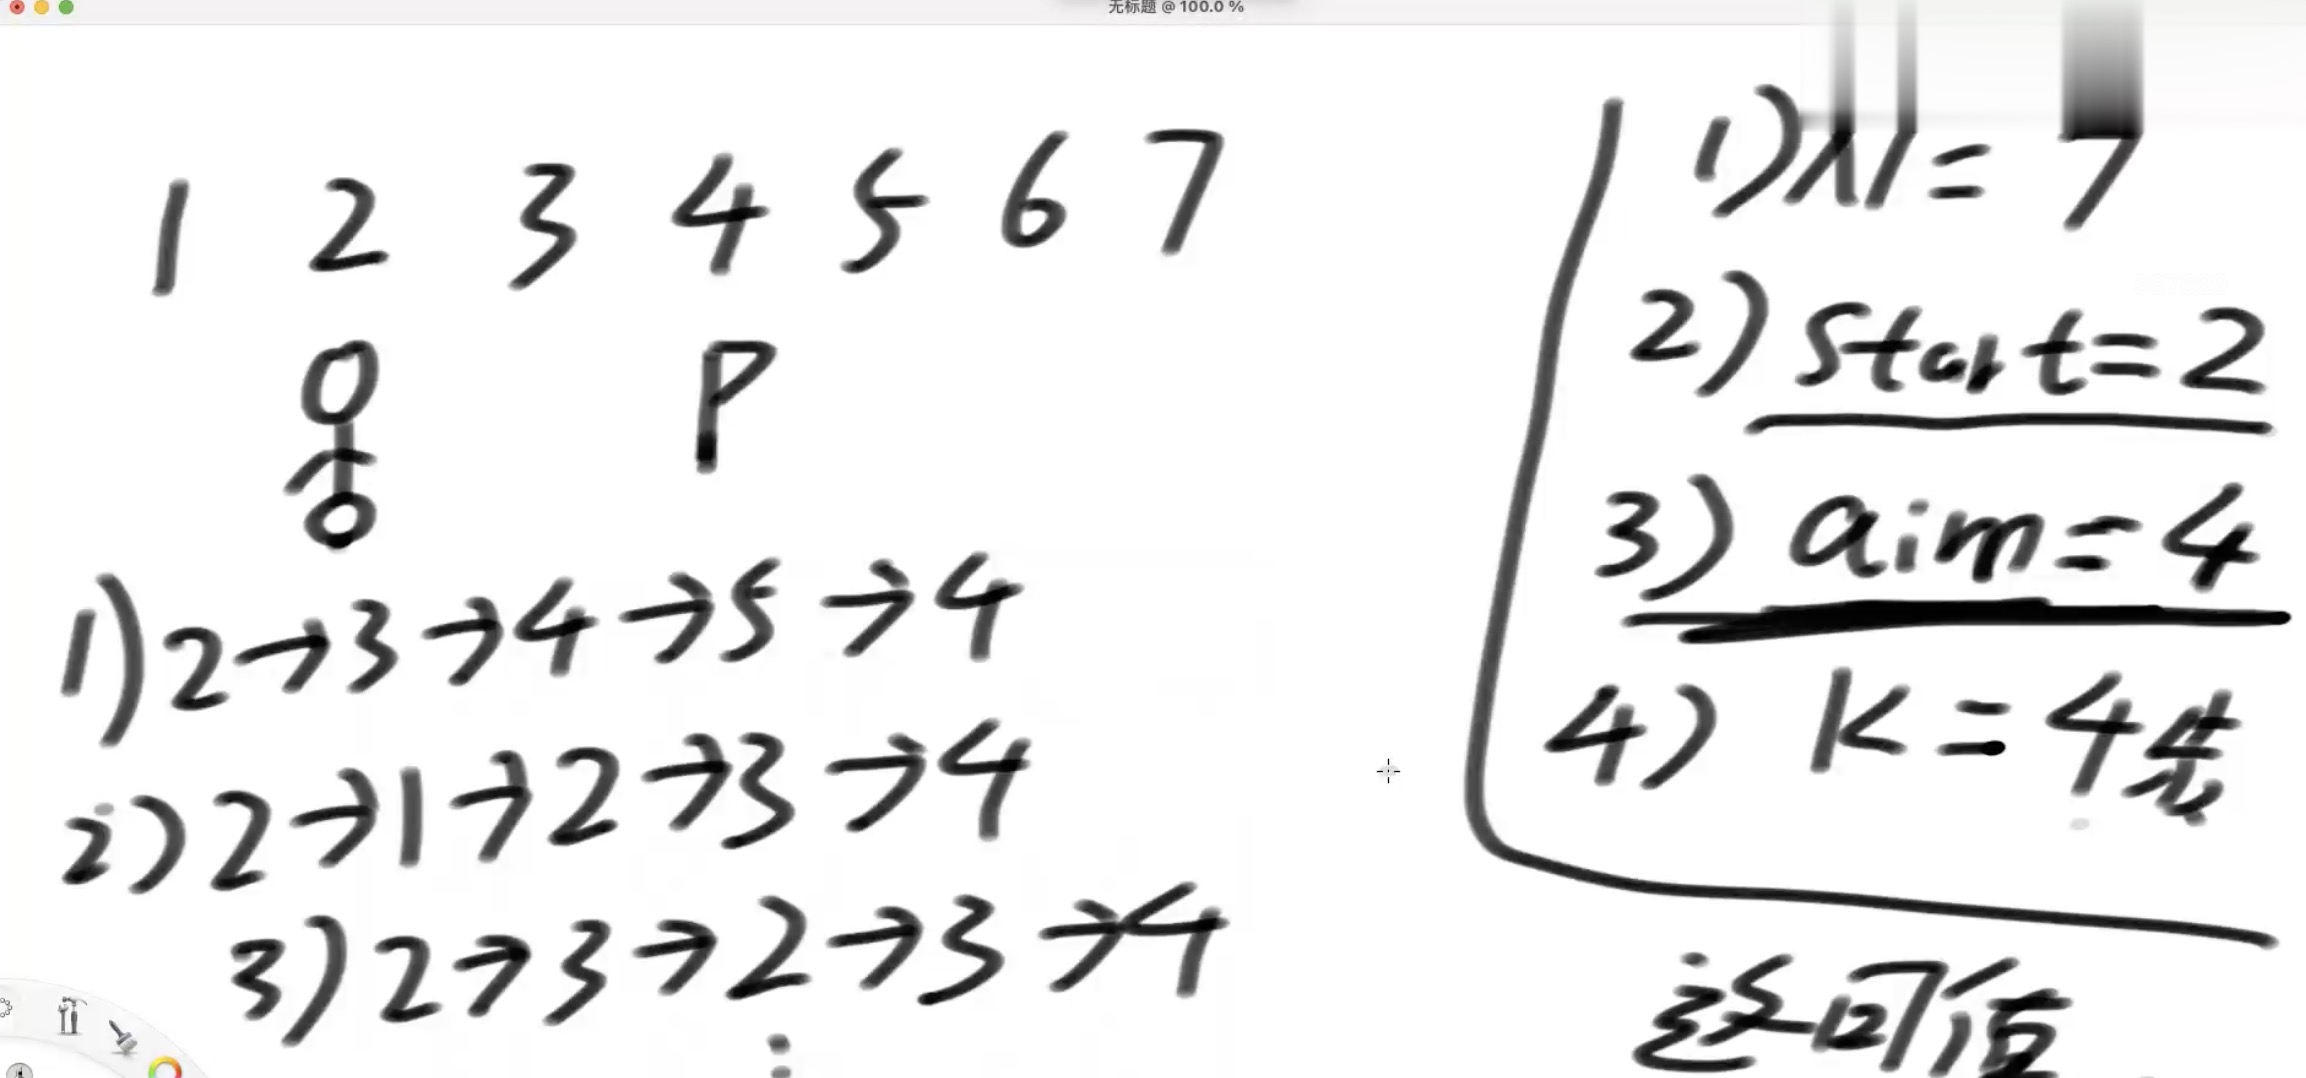 无标题 @ 100.0 %
1 2 3 4 5 6 7
P
1) 2→3→4→5→4
2) 2→1→2→3→4
3) 2→3→2→3→4
⋮
1) N = 7
2) start = 2
3) aim = 4
4) K = 4步
返回值